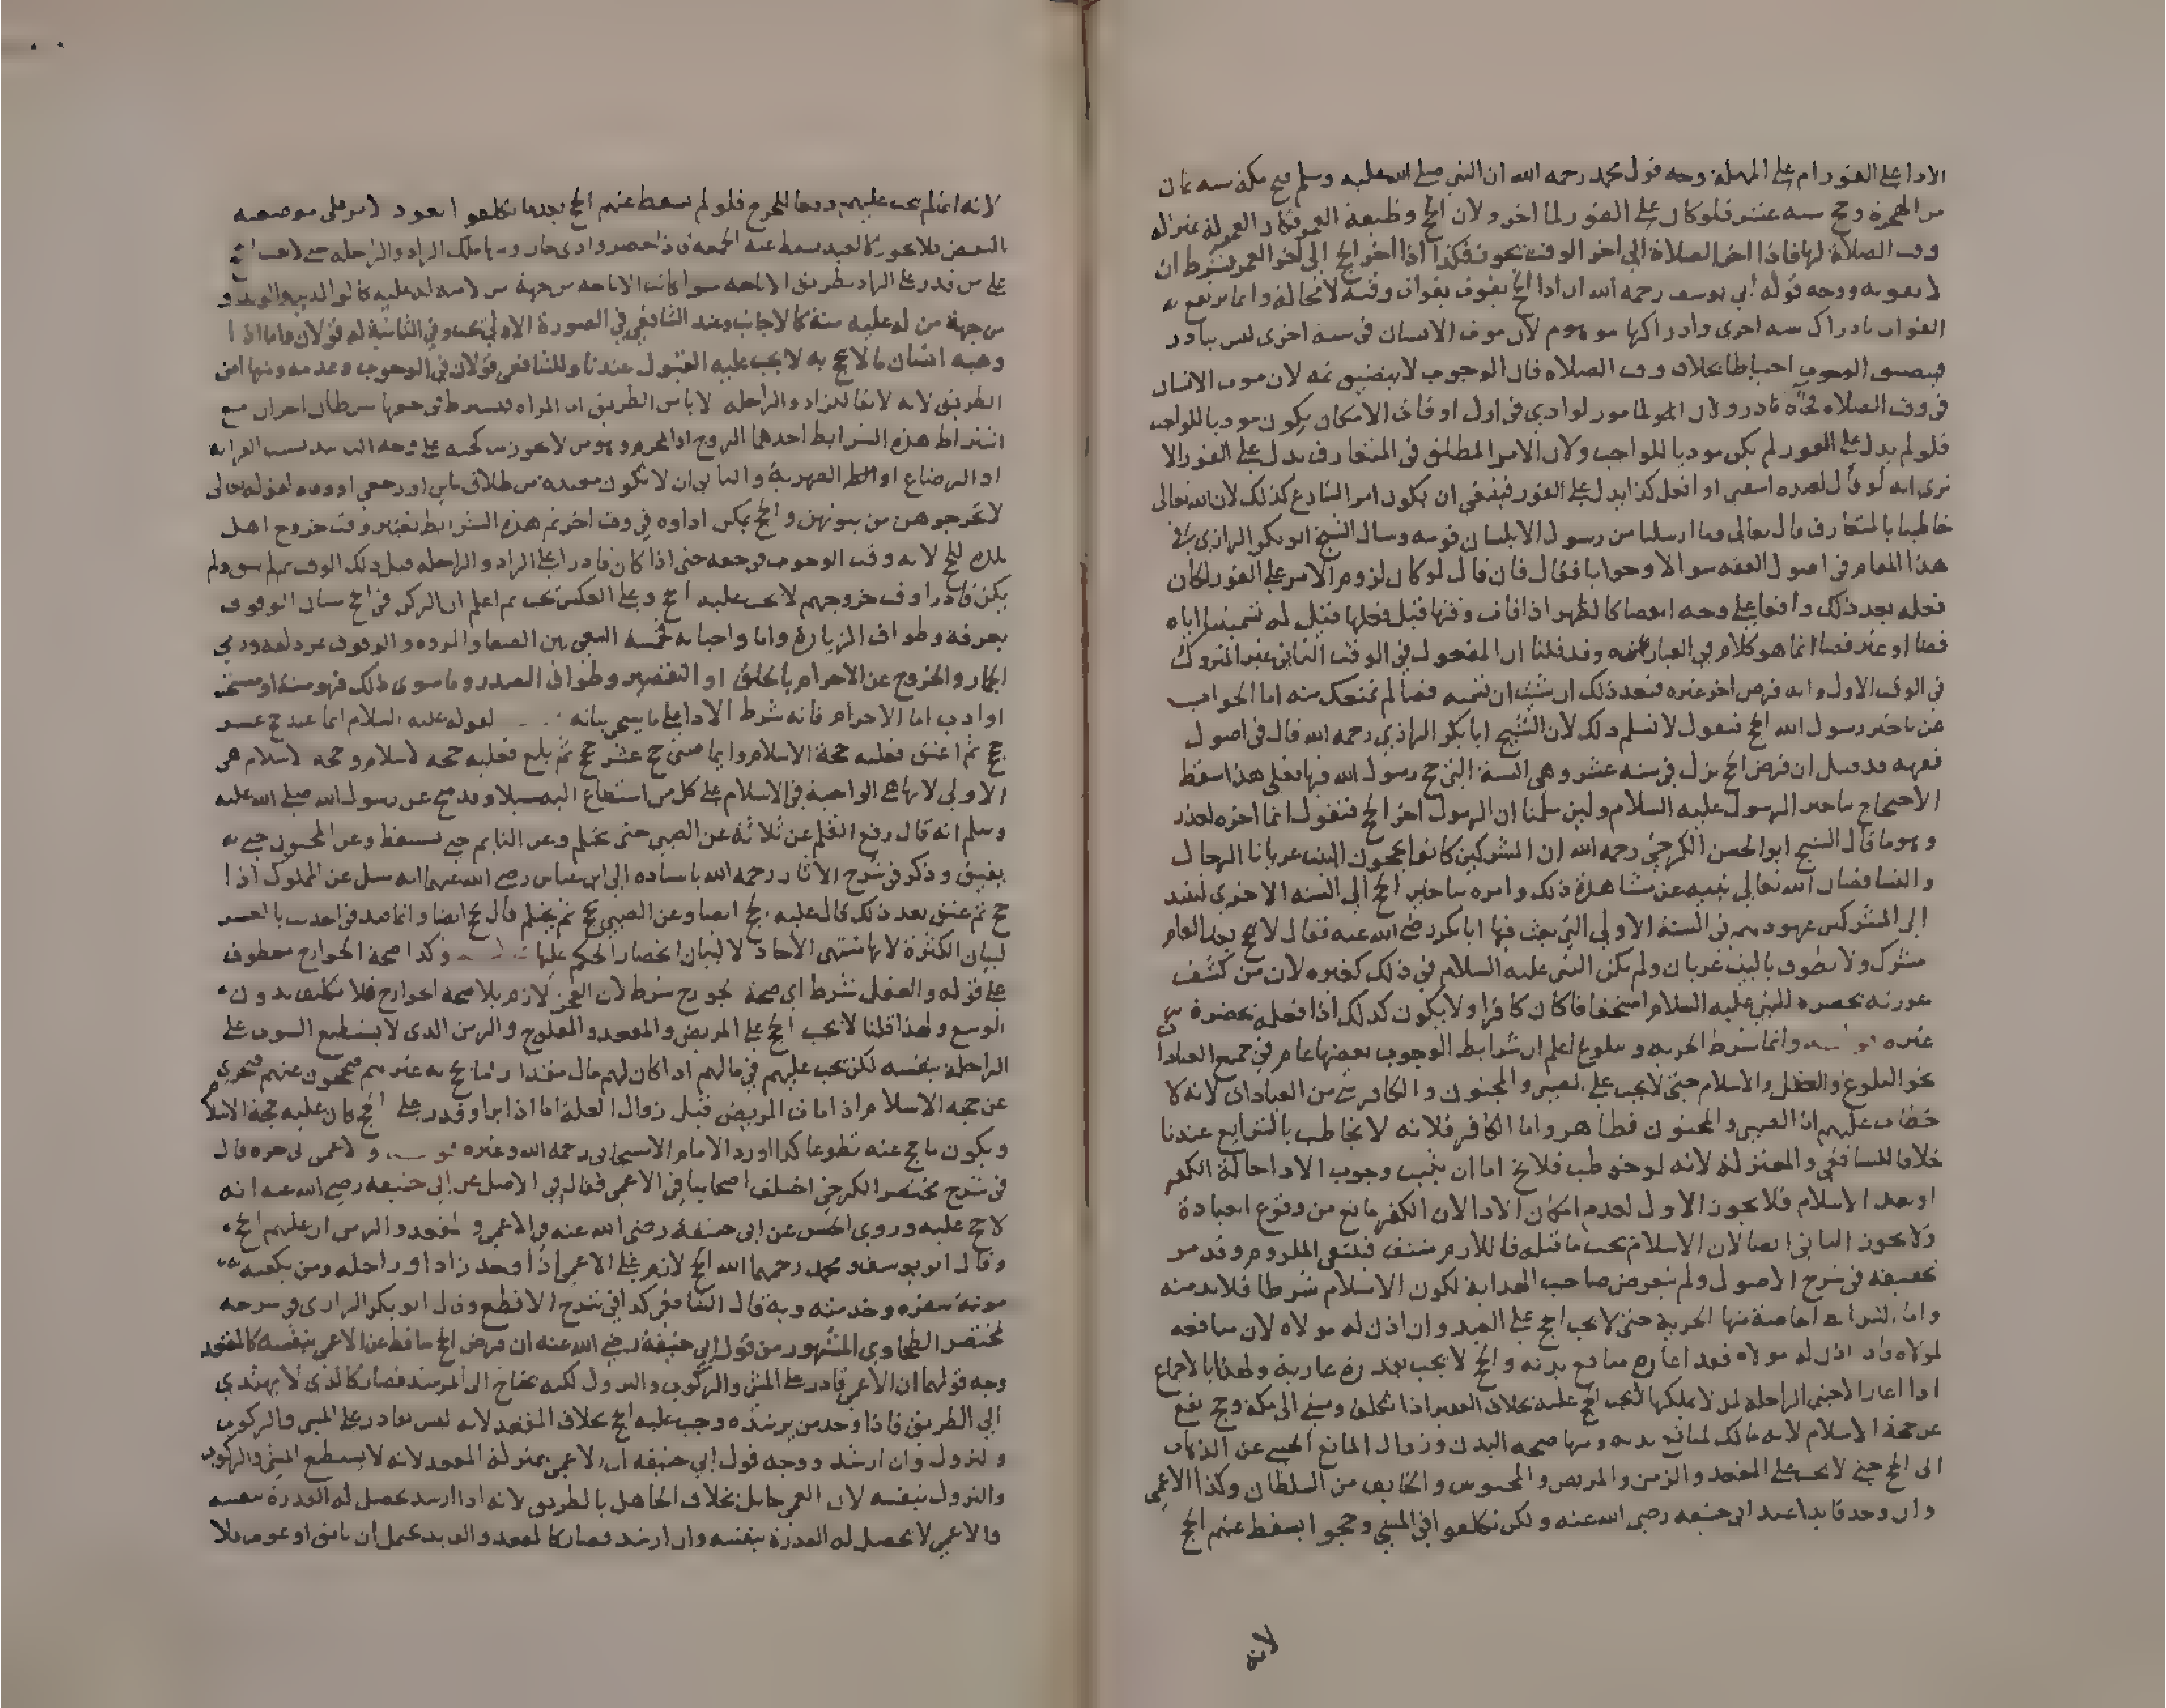 الاداء على الفور ام على المهلة وجه قول محمد رحمه الله ان النبي صلى الله عليه وسلم فتح مكة سنه ثمان
من الهجرة وحج سنه عشر فلو كان على الفور لما اخر ولان الحج وظيفة العمر فكان العمر له بمنزلة
وقت الصلاة لها فاذا اخر الصلاة الى اخر الوقت يجوز فكذا اذا اخر الحج الى اخر العمر بشرط ان
لا يفوته ووجه قوله ابي يوسف رحمه الله ان اداء الحج يفوت بفوات وقته لا محالة وانما يرتفع
الفوات بادراك سنه اخرى وادراكها موهوم لان موت الانسان في سنه اخرى ليس بنادر
فيضيق الوجوب احتياطا بخلاف وقت الصلاه فان الوجوب لا يتضيق ثمه لان موت الانسان
في وقت الصلاه فجأة نادر ولان المولى مامور لو ادى في اول اوقات الامكان يكون موديا للواجب
فلو لم يدل على الفور لم يكن موديا للواجب ولان الامر المطلق في المتعارف يدل على الفور الا
ترى انه لو قال لعبده اسقني او افعل كذا يدل على الفور فينبغي ان يكون امر الشارع كذلك لان الله تعالى
خاطبنا بالمتعارف قال تعالى وما ارسلنا من رسول الا بلسان قومه وسال الشيخ ابو بكر الرازي في
هذا المقام في اصول الفقه سوالا وجوابا فقال فان قال لو كان لزوم الامر على الفور لكان
فعله بعد ذلك واقعا على وجه القضا كالظهر اذا فات وقتها قبل فعلها قيل له تسميتنا اياه
قضا او غير قضا انما هو كلام في العبارة وقد قلنا ان المفعول في الوقت الثاني غير المتروك
في الوقت الاول وانه فرض اخر غيره فبعد ذلك ان شئت ان تسميه قضا لم نمنعك منه اما الجواب
عن تاخير رسول الله الحج فنقول لا نسلم ذلك لان الشيخ ابا بكر الرازي رحمه الله قال في اصول
فقهه قد قيل ان فرض الحج نزل في سنه عشر وهي السنة التي حج رسول الله فيها فعلى هذا سقط
الاحتجاج بتاخير الرسول عليه السلام ولين سلمنا ان الرسول اخر الحج فنقول انما اخره لعذر
وهو ما قال الشيخ ابو الحسن الكرخي رحمه الله ان المشركين كانوا يحجون البيت عريانا الرجال
والنسا فصان الله تعالى نبيه عن مشاهدة ذلك وامره بتاخير الحج الى السنه الاخرى لينبذ
الى المشركين عهودهم في السنة الاولى التي بعث فيها ابا بكر رضي الله عنه فقال لا يحج بعد العام
مشرك ولا يطوف بالبيت عريان ولم يكن النبي عليه السلام في ذلك كغيره لان من كشف
عورته بحضرة النبي عليه السلام مستخفا كان كافرا ولا يكون كذلك اذا فعله بحضرة
غيره وانما شرط الحرية والبلوغ اعلم ان شرايط الوجوب بعضها عام في جميع العبادات
نحو البلوغ والعقل والاسلام حتى لا يجب على الصبي والمجنون والكافر شي من العبادات لانه لا
خطاب عليهم اما الصبي والمجنون فظاهر واما الكافر فلانه لا يخاطب بالشرايع عندنا
خلافا للشافعي والمعتزلة لانه لو خوطب فلا يخ اما ان يثبت وجوب الاداء حالة الكفر
او بعد الاسلام فلا يجوز الاول لعدم امكان الاداء لان الكفر مانع من وقوع العبادة
ولا يجوز الثاني ايضا لان الاسلام يجب ما قبله فاللازم منتف فينتفي الملزوم وقد مر
تحقيقه في شرح الاصول ولم يتعرض صاحب الهداية لكون الاسلام شرطا فلا بد منه
واما الشرايط الخاصة فمنها الحرية حتى لا يجب الحج على العبد وان اذن له مولاه لان منافعه
لمولاه فاذا اذن له مولاه فقد اعاره منافع بدنه والحج لا يجب بقدرة عارية ولهذا بالاجماع
اذا اعار الاجنبي الراحلة لمن لا يملكها لا يجب الحج عليه بخلاف الفقير اذا تكلف ومشى الى مكة وحج يقع
عن حجة الاسلام لانه مالك لمنافع بدنه ومنها صحه البدن وزوال المانع الحسي عن الذهاب
الى الحج حتى لا يجب على المقعد والزمن والمريض والمحبوس والخايف من السلطان وكذا الاعمى
وان وجد قايدا عند ابي حنيفه رضي الله عنه ولكن تكلفوا في المشي وحجوا يسقط عنهم الحج
لانه
لانه انما لم يجب عليهم دفعا للحرج فلو لم يسقط عنهم الحج بعدما تكلفوا لعود الامر على موضعه
بالنقض فلا يجوز كالعبد يسقط عنه الجمعة اذا حضر وادى جاز ومنها ملك الزاد والراحله حتى لا يجب الحج
على من قدر على الزاد بطريق الاباحه سوا كانت الاباحه من جهة من لا منه له عليه كالوالدين والولد و
من جهة من له عليه منة كالاجانب وعند الشافعي في الصورة الاولى يجب وفي الثانية له قولان واما اذا
وهبه انسان مالا يحج به لا يجب عليه القبول عندنا وللشافعي قولان في الوجوب وعدمه ومنها امن
الطريق لانه لا بقا للزاد والراحله لا بامن الطريق اما المراه فيشترط في حقها شرطان اخران مع
اشتراط هذه الشرايط احدهما الزوج او المحرم وهو من لا يجوز نكحته على وجه التابيد بسبب القرابه
او الرضاع او الصهرية والثاني ان لا تكون معتده من طلاق باين او رجعي او وفاه لقوله تعالى
لا تخرجوهن من بيوتهن والحج يمكن اداوه في وقت اخر ثم هذه الشرايط تعتبر وقت خروج اهل
بلده للحج لانه وقت الوجوب في حقه حتى اذا كان قادرا على الزاد والراحله قبل ذلك الوقت ولم
يكن قادرا وقت خروجهم لا يجب عليه الحج وعلى العكس يجب ثم اعلم ان الركن في الحج شيان الوقوف
بعرفه وطواف الزيارة واما واجباته فخمسة السعي بين الصفا والمروه والوقوف بمزدلفه ورمي
الجمار والخروج عن الاحرام بالحلق او التقصير وطواف الصدر وما سوى ذلك فهو سنة او مستحب
او ادب اما الاحرام فانه شرط الاداء على ما يجي بيانه لقوله عليه السلام ايما عبد حج عشر
حج ثم اعتق فعليه حجة الاسلام وايما صبي حج عشر حج ثم بلغ فعليه حجه الاسلام وحجه الاسلام هي
الاولى لانها هي الواجبة في الاسلام على كل من استطاع اليه سبيلا وقد صح عن رسول الله صلى الله عليه
وسلم انه قال رفع القلم عن ثلاثة عن الصبي حتى يحتلم وعن النايم حتى يستيقظ وعن المجنون حتى
يفيق وذكر في شرح الاثار رحمه الله باسناده الى ابن عباس رضي الله عنهما انه سئل عن المملوك اذا
حج ثم عتق بعد ذلك قال عليه الحج ايضا وعن الصبي يحج ثم يحتلم قال يحج ايضا وانما قيد في الحديث بالعشر
لبيان الكثرة لانها منتهى الاحاد لا لبيان انحصار الحكم عليها وكذا صحة الجوارح معطوف
على قوله والعقل شرط اي صحة الجوارح شرط لان العجز لازم بلا صحة الجوارح فلا تكليف بدون
الوسع ولهذا قلنا لا يجب الحج على المريض والمقعد والمفلوج والزمن الذي لا يستطيع الثبوت على
الراحلة بنفسه لكن يجب عليهم في مالهم اذا كان لهم مال مقدار ما يحج به غيرهم فيحجون عنهم فيجزي
عن حجه الاسلام اذا مات المريض قبل زوال العلة اما اذا برا وقدر على الحج كان عليه حجة الاسلام
ويكون ما حج عنه تطوعا كذا اورد الامام الاسبيجابي رحمه الله وغيره والاعمى الى اخره قال
في شرح مختصر الكرخي اختلف اصحابنا في الاعمى فقال في الاصل عن ابي حنيفه رضي الله عنه انه
لا حج عليه وروى الحسن عن ابي حنيفة رضي الله عنه في الاعمى والمقعد والزمن ان عليهم الحج
وقال ابو يوسف ومحمد رحمهما الله الحج لازم على الاعمى اذا وجد زادا وراحله ومن يكفيه
مونة سفره وخدمته وبه قال الشافعي كذا في شرح الاقطع وقال ابو بكر الرازي في شرحه
لمختصر الطحاوي المشهور من قول ابي حنيفة رضي الله عنه ان فرض الحج ساقط عن الاعمى بنفسه كالمقعد
وجه قولهما ان الاعمى قادر على المشي والركوب والنزول لكنه يحتاج الى المرشد فصار كالذي لا يهتدي
الى الطريق فاذا وجد من يرشده وجب عليه الحج بخلاف المقعد لانه ليس بقادر على المشي والركوب
والنزول وان ارشد ووجه قول ابي حنيفه ان الاعمى بمنزلة المقعد لانه لا يستطيع المشي والركوب
والنزول بنفسه لان العمى حايل بخلاف الجاهل بالطريق لانه اذا ارشد يحصل له القدرة بنفسه
والاعمى لا يحصل له القدرة بنفسه وان ارشد فصار كالمقعد والقايد يحتمل ان يابق او يموت فلا